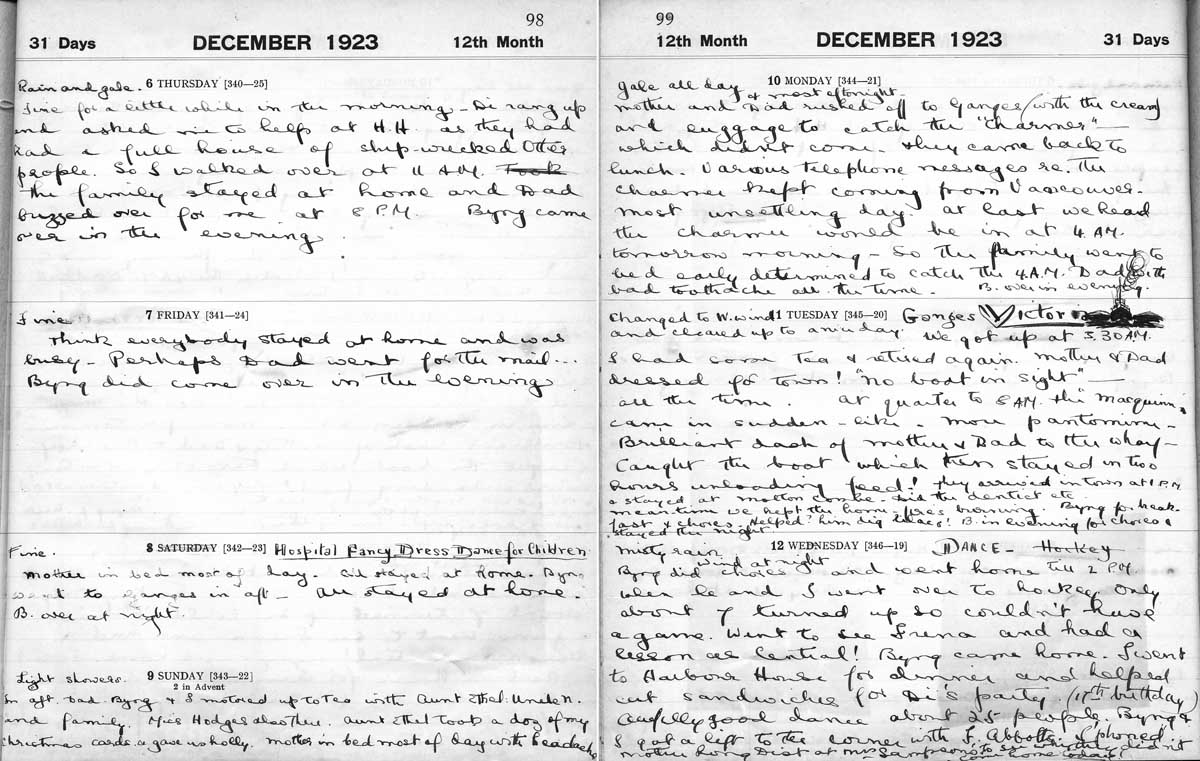 98
31 Days DECEMBER 1923 12th Month
Rain and gale. 6 THURSDAY [340—25]
Fine for a little while in the morning - Di rang up
and asked me to help at H.H. as they had
had a full house of ship-wrecked Otter
people. So I walked over at 11 A.M. Took
The family stayed at home and Dad
buzzed over for me at 8 P.M. Byng came
over in the evening.
Fine. 7 FRIDAY [341—24]
Think everybody stayed at home and was
busy - Perhaps Dad went for the mail...
Byng did come over in the evening
Fine. 8 SATURDAY [342—23] Hospital Fancy Dress Dance for Children
Mother in bed most of day. All stayed at home. Byng
went to Ganges in aft - All stayed at home.
B. over at night.
Light showers. 9 SUNDAY [343—22]
2 in Advent
In aft. Dad, Byng & I motored up to tea with Aunt Ethel. Uncle N.
and family. Miss Hodges also there. Aunt Ethel took a doz of my
Christmas cards & gave us holly. Mother in bed most of day with headache
99
12th Month DECEMBER 1923 31 Days
Gale all day & most of night. 10 MONDAY [344—21]
Mother and Dad rushed off to Ganges (with the cream)
and luggage to catch the "Charmer" —
which didn't come. They came back to
lunch. Various telephone messages re. the
Charmer kept coming from Vancouver.
Most unsettling day. At last we heard
the Charmer would be in at 4 A.M.
tomorrow morning - So the family went to
bed early determined to catch the 4 A.M. Dad with
bad toothache all the time. B. over in evening.
Changed to W. wind 11 TUESDAY [345—20] Ganges Victoria
and cleared up to a nice day. We got up at 3.30 A.M.
I had some tea & retired again. Mother & Dad
dressed for town! "No boat in sight" —
all the time. At quarter to 8 A.M. the "Macquinna"
came in sudden-like. More pantomime -
Brilliant dash of Mother & Dad to the wharf -
Caught the boat which then stayed in two
hours unloading feed! They arrived in town at 1 P.M.
& stayed at Motton Combe. Did the dentist etc.
Meantime we kept the home-fires burning. Byng for break-
fast & chores. Helped? him dig lilacs! B. in evening for chores &
stayed the night.
Misty rain 12 WEDNESDAY [346—19] DANCE - Hockey
Wind at night
Byng did chores and went home till 2 P.M.
when he and I went over to hockey. Only
about 7 turned up so couldn't have
a game. Went to see Irena and had a
lesson at Central! Byng came home. I went
to Harbour House for dinner and helped
cut sandwiches for Di's party (17th birthday)
Awfully good dance about 25 people. Byng &
I got a left to the corner with F. Abbotts. I phoned
Mother Long Dist at Mrs Sampson's to say why they didn't
come home today!